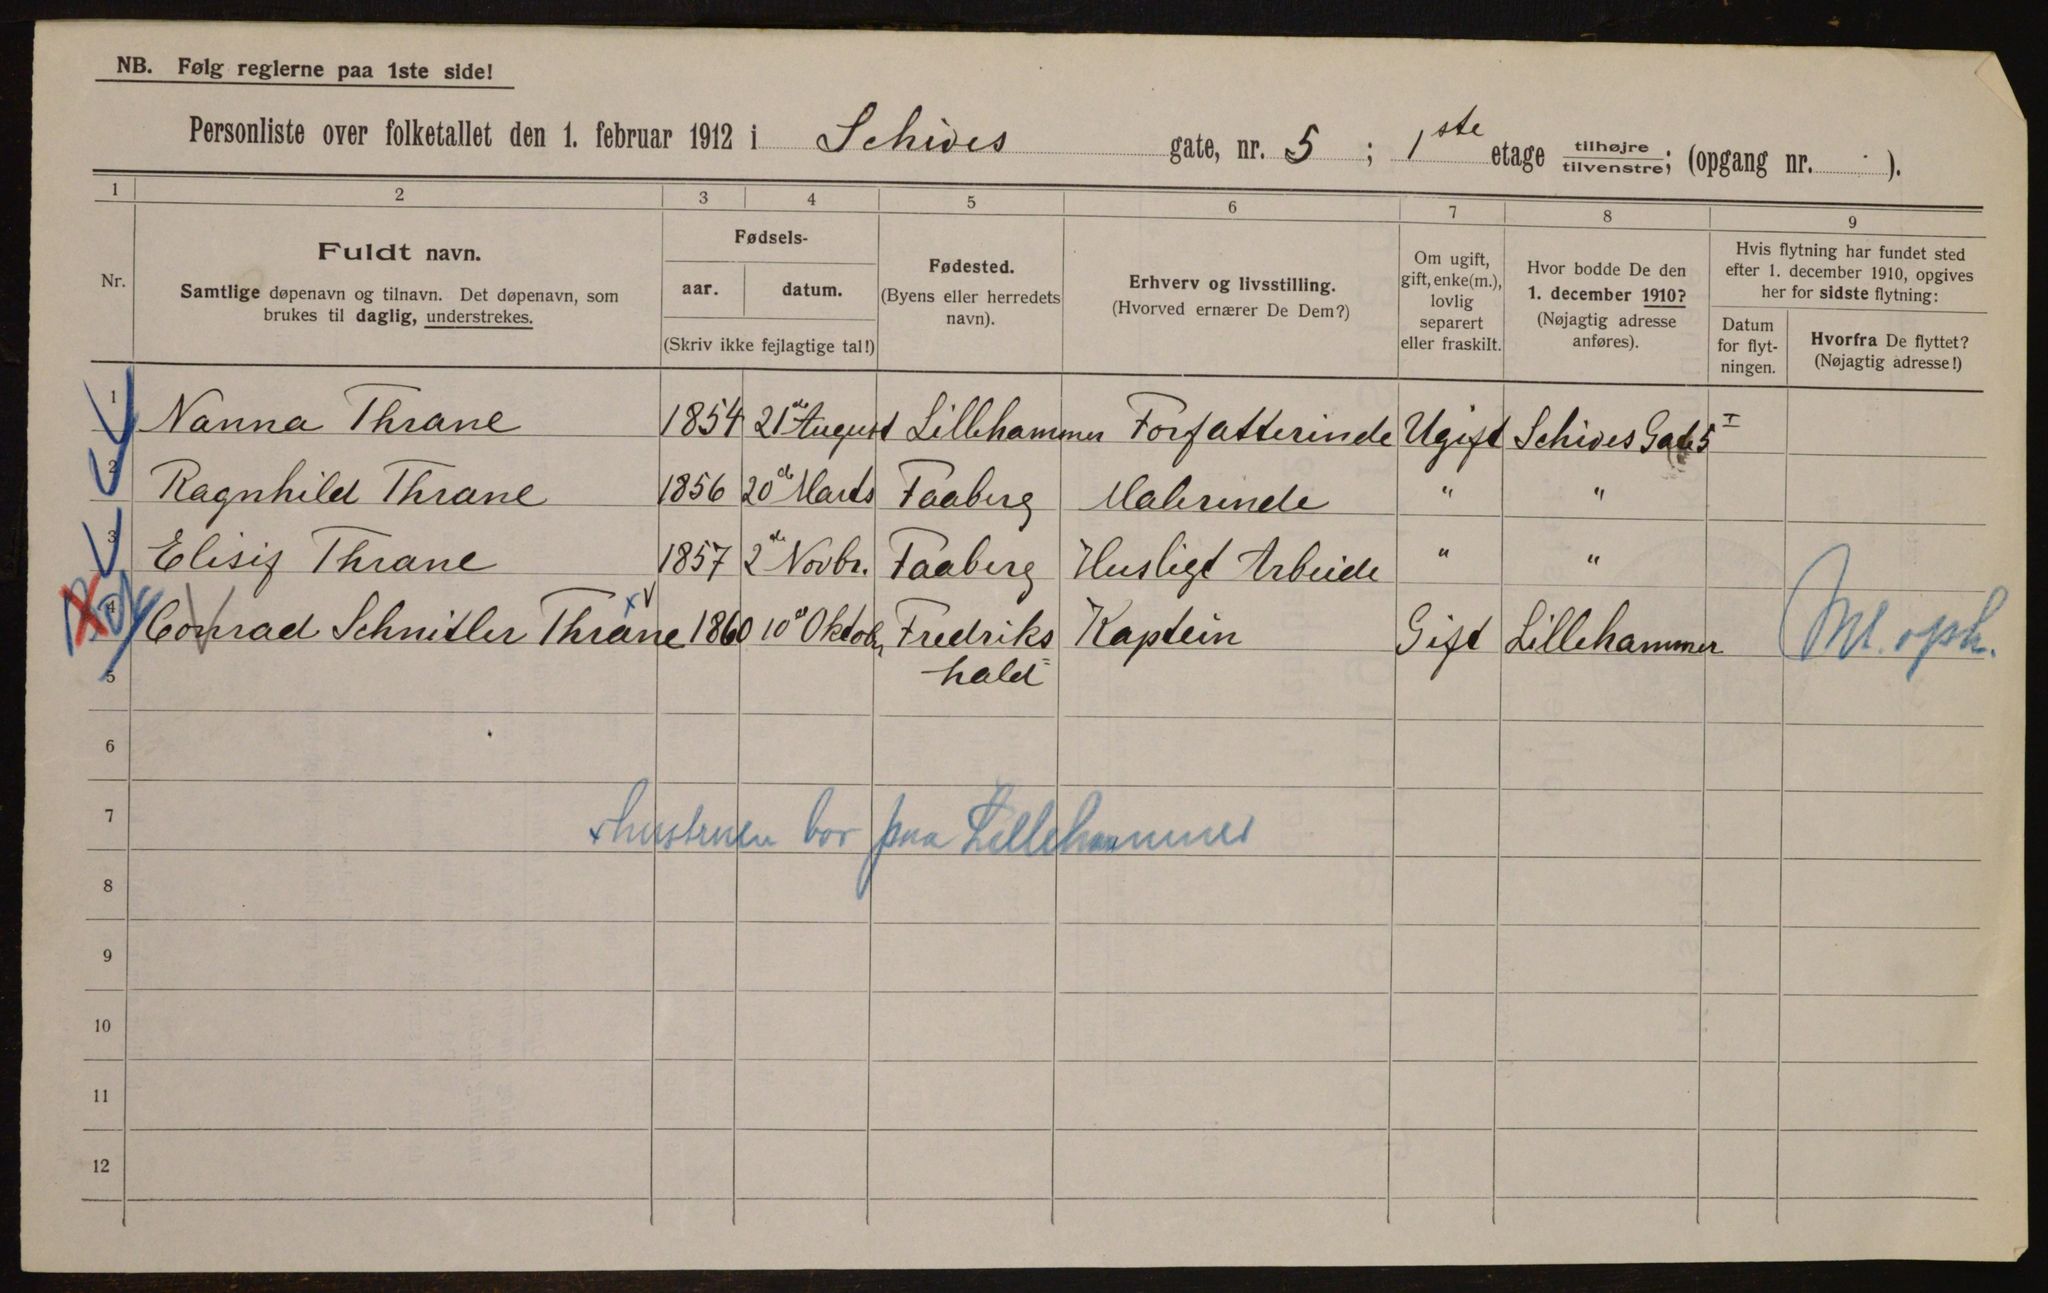 NB. Følg reglerne paa 1ste side!
Personliste over folketallet den 1. februar 1912 i Schives gate, nr. 5 ; 1ste etage tilhøjre/tilvenstre; (opgang nr. ).
1 2 3 4 5 6 7 8 9
Nr.
Fuldt navn.
Samtlige døpenavn og tilnavn. Det døpenavn, som
brukes til daglig, understrekes.
Fødsels-
aar. datum.
(Skriv ikke fejlagtige tal!)
Fødested.
(Byens eller herredets
navn).
Erhverv og livsstilling.
(Hvorved ernærer De Dem?)
Om ugift,
gift, enke(m.),
lovlig
separert
eller fraskilt.
Hvor bodde De den
1. december 1910?
(Nøjagtig adresse
anføres).
Hvis flytning har fundet sted
efter 1. december 1910, opgives
her for sidste flytning:
Datum
for flyt-
ningen.
Hvorfra De flyttet?
(Nøjagtig adresse!)
1 Nanna Thrane 1854 21de August Lillehammer Forfatterinde Ugift Schives Gade 5 I
2 Ragnhild Thrane 1856 20de Marts Faaberg Malerinde " "
3 Elisif Thrane 1857 2de Novbr. Faaberg Husligt Arbeide " "
4 Conrad Schnitler Thrane x 1860 10de Oktob. Fredriks= Kaptein Gift Lillehammer Ml. oph.
hald
5
6
7 x hustruen bor paa Lillehammer
8
9
10
11
12